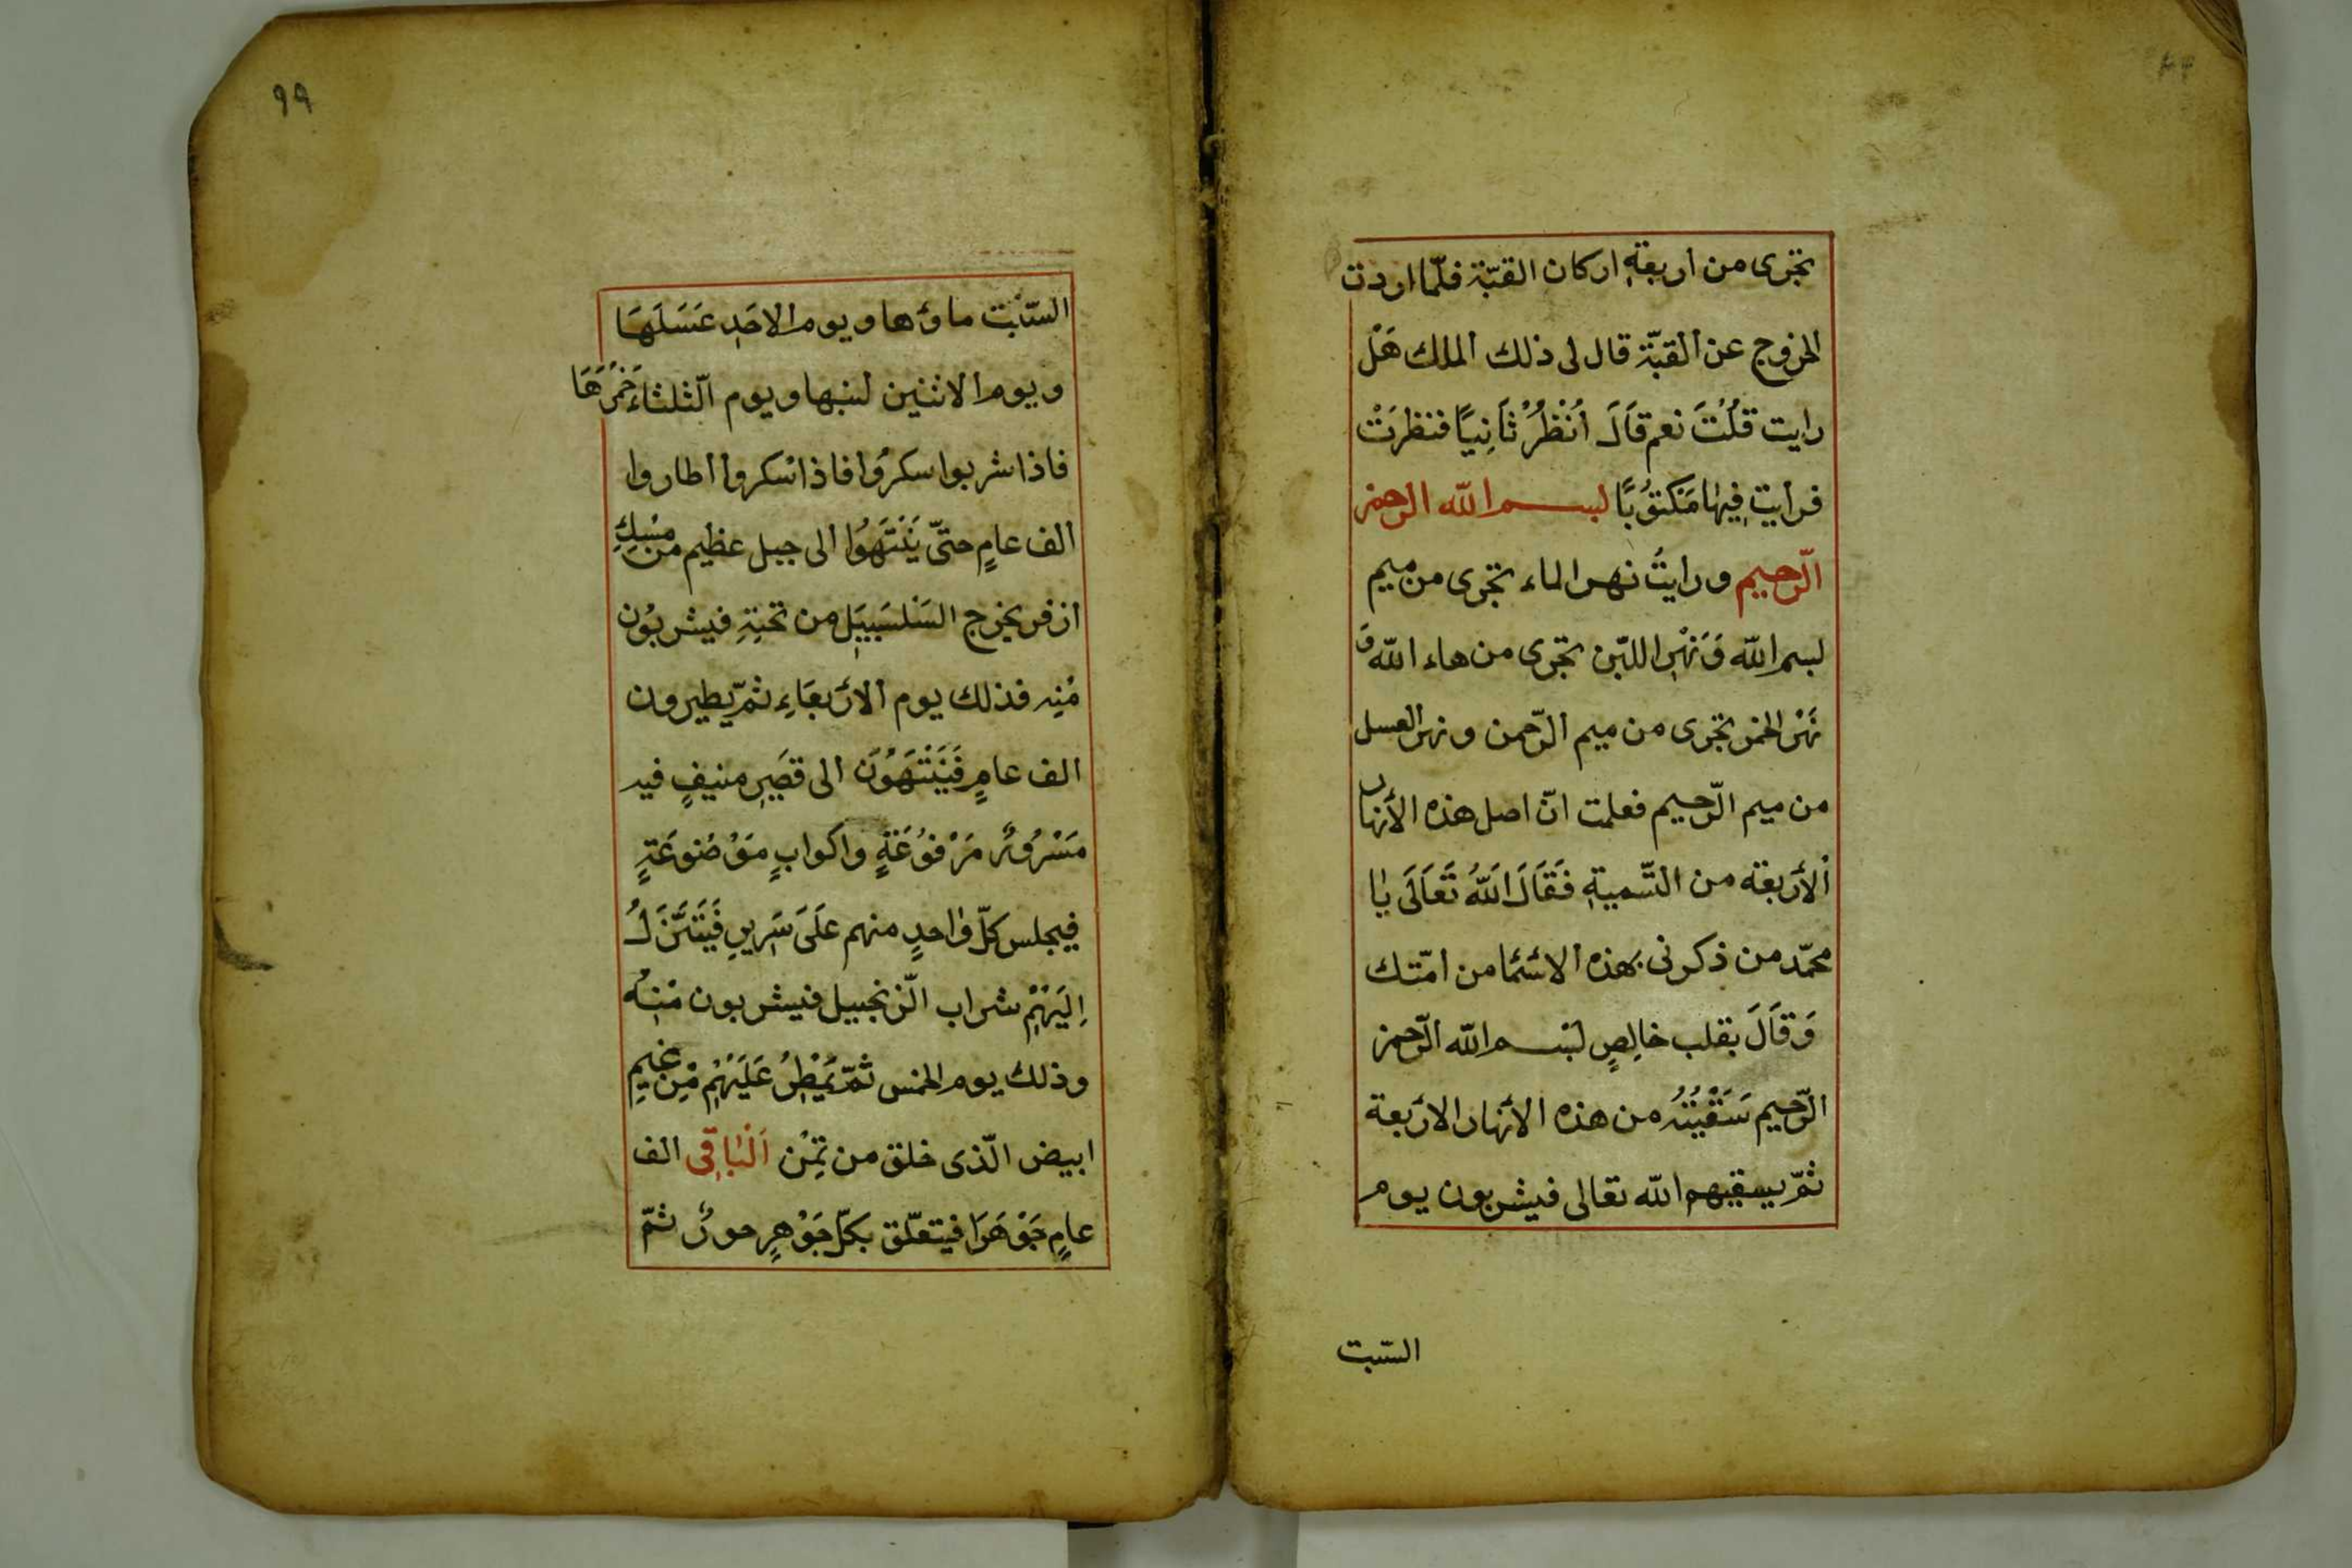 تجرى من اربعةِ اركان القبّة فلمّا اردت
الخروج عن القبّة قال لى ذلك الملك هَلْ
رايت قُلْتَ نعم قَالَ اُنْظُرْ ثَانِيًا فنظرَتْ
فرايت فِيهٰا مَكتوُبًا لبســم الله الرحمن
الرّحيم ورايتُ نهر الماء تجرى من ميم
لبسم الله وَنَهْرِ اللّبن تجرى من هاء الله وَ
نَهْر الخمر تجرى من ميم الرّحمن ونهر العسل
من ميم الرّحيم فعلمت انّ اصل هذه الأنهار
الأرْبعة من التّسميةِ فَقَالَ اللّٰهُ تَعَالَى يٰا
محمّد من ذكرنى بهذه الاسْمَا من امّتك
وَقَالَ بقلب خالِصٍ لبْســم الله الرّحمن
الرّحيم سَقْيْتُهُ من هذه الأنهار الارْبعة
ثمّ يسقيهم الله تعالى فيشربون يوم
السّبت
٩٩
السّبْت ماؤها ويوم الاحَدِ عَسَلَهَا
ويوم الاثنين لبنها ويوم الثّلثاءَ خَمْرَهَا
فاذا شربوا سكرُوا فاذا سْكروا اطاروا
الف عامٍ حتّى يَنْتَهَوُا الى جبل عظيم من مِسْكِ
ازفر يخرج السَلسَبِيَلِ من تحتِهِ فيشربوُن
مْنِه فذلك يوم الارْبعَاءِ ثمّ يطيرون
الف عامٍ فَيَنْتَهَوُنَ الى قصَرٍ منيفٍ فيه
مَسْرُورٌ مَرْفوُعَةٍ واكوابٍ موَْضُوعَةٍ
فيجلس كلّ وٰاحدٍ منهم عَلَىَ سَرِيرٍ فَيَتَنَّزَلُ
اِلَيَهْمْ شراب الزّنجبيل فيشربون مْنِهُ
وذلك يوم الخمس ثمّ يَمْطِرُ عَلَيَهْمِ مْنِ غَيمٍ
ابيض الّذى خلق من تمِن اَلْبٰاقِى الف
عامٍ جَوْهَرَا فيتعلّق بكلّ جَوْهرٍ حورٌ ثمّ